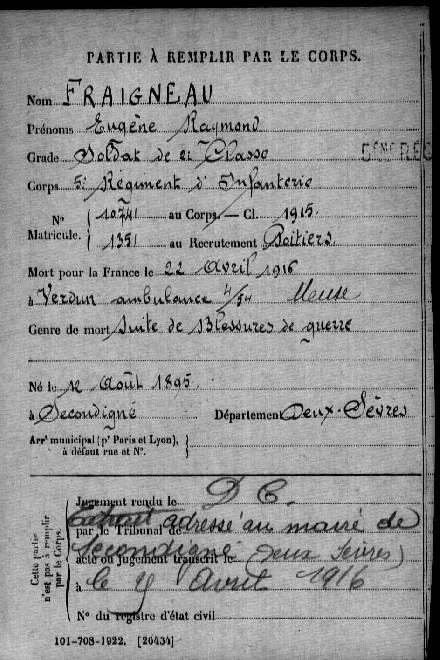 PARTIE À REMPLIR PAR LE CORPS.
Nom FRAIGNEAU
Prénoms Eugène Raymond
Grade Soldat de 2e Classe
Corps 5e Régiment d'Infanterie
N° Matricule. { 10741 au Corps. — Cl. 1915.
1351 au Recrutement Poitiers
Mort pour la France le 22 Avril 1916
à Verdun ambulance 4/54 Meuse
Genre de mort Suite de Blessures de guerre
Né le 12 Août 1895.
à Secondigné Département Deux-Sèvres
Arr' municipal (p' Paris et Lyon), à défaut rue et N°. }
Cette partie n'est pas à remplir par le Corps.
Jugement rendu le D C.
par le Tribunal de adressé au maire de
acte ou jugement transcrit le Secondigné (Deux Sèvres)
à le Avril 1916
N° du registre d'état civil
101-708-1922. [20434]